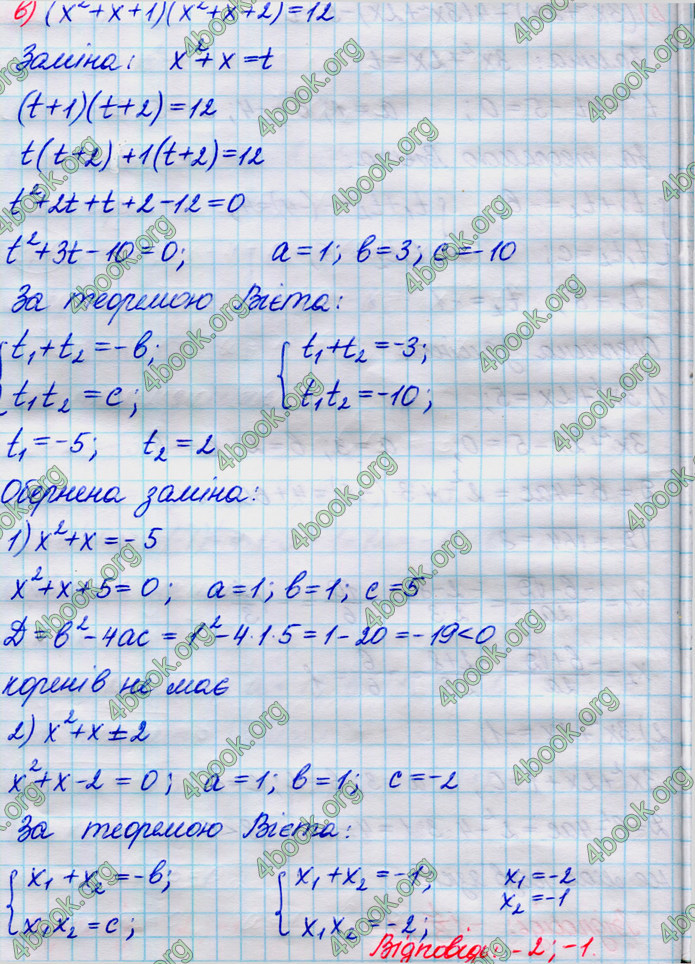 в) (x²+x+1)(x²+x+2)=12
Заміна: x²+x=t
(t+1)(t+2)=12
t(t+2)+1(t+2)=12
t²+2t+t+2-12=0
t²+3t-10=0; a=1; в=3; c=-10
За теоремою Вієта:
{t₁+t₂=-в; {t₁+t₂=-3;
{t₁t₂=c; {t₁t₂=-10;
t₁=-5; t₂=2
Обернена заміна:
1) x²+x=-5
x²+x+5=0; a=1; в=1; c=5
Д=в²-4ac=1²-4·1·5=1-20=-19<0
коренів не має
2) x²+x=2
x²+x-2=0; a=1; в=1; c=-2
За теоремою Вієта:
{x₁+x₂=-в; {x₁+x₂=-1; x₁=-2
x₂=-1
{x₁x₂=c; {x₁x₂=-2;
Відповідь: -2; -1.
4book.org